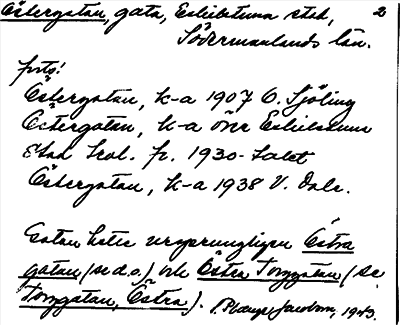 Östergatan, gata, Eskilstuna stad, 2
Södermanlands län.
foto:
Östergatan, k-a 1907 O. Sjöling
Östergatan, k-a över Eskilstuna
stad Skol. fr. 1930-talet
Östergatan, k-a 1938 V. Dale.
Gatan heter ursprungligen Östra
gatan (se d.o.) och Östra Torggatan (se
Torggatan, Östra). Jacobson, 1943.